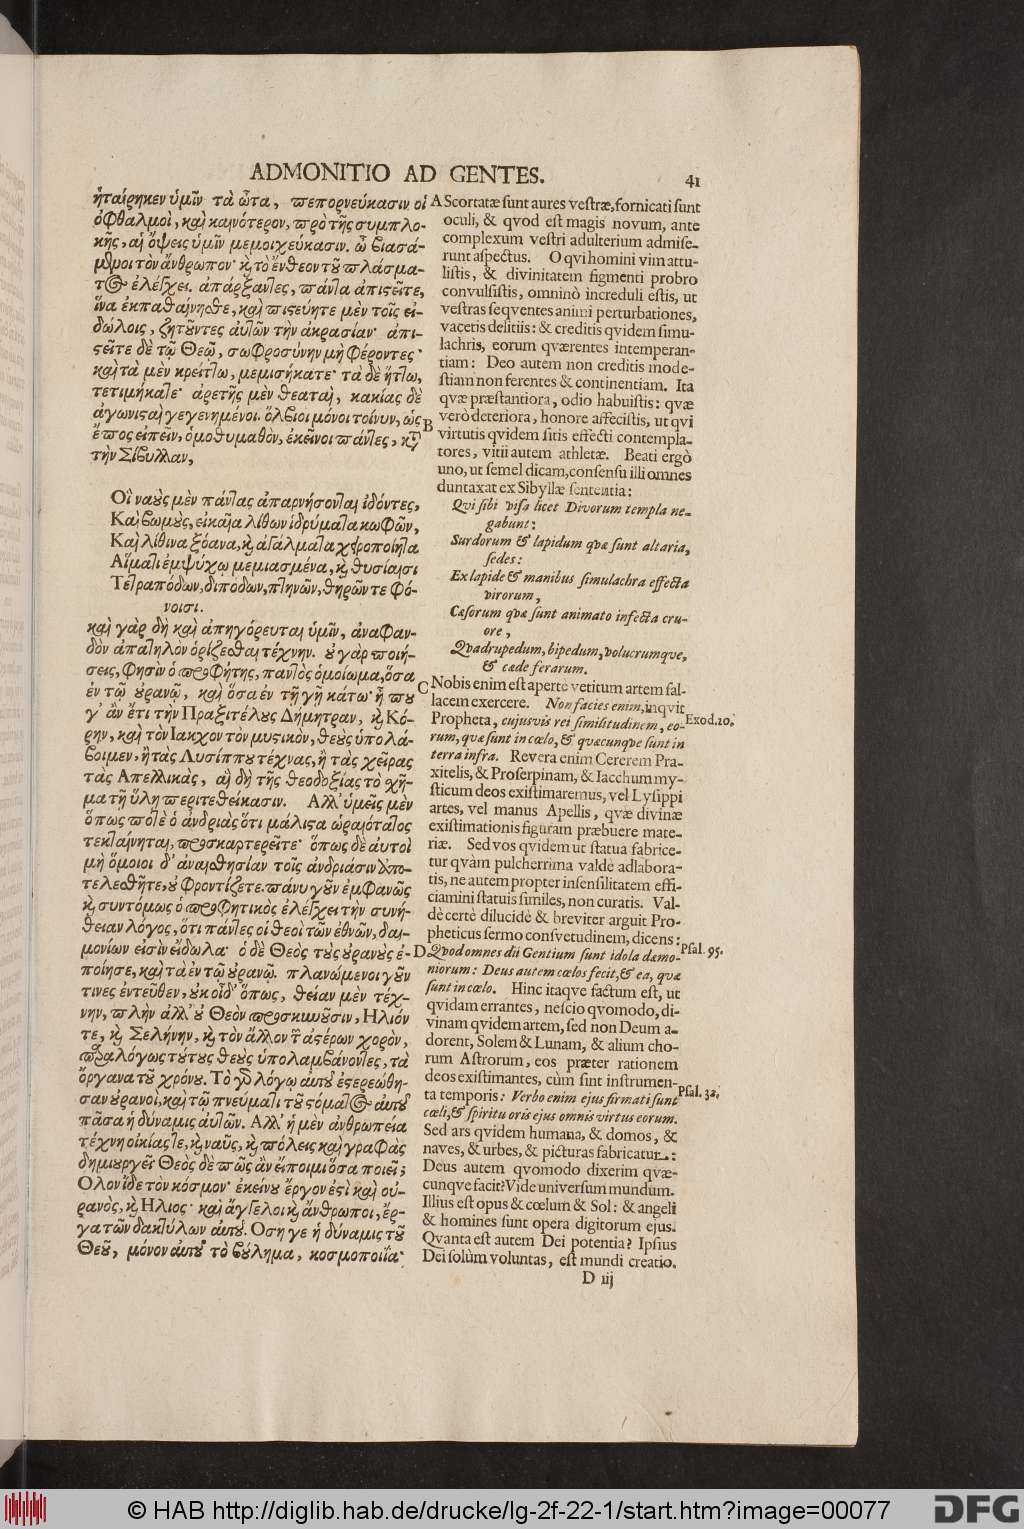 ADMONITIO AD GENTES.
41
ἡταίρηκεν ὑμῖν τὰ ὦτα, πεπορνεύκασιν οἱ
ὀφθαλμοὶ, καὶ καινότερον, πρὸ τῆς συμπλο-
κῆς, αἱ ὄψεις ὑμῖν μεμοιχεύκασιν. ὦ βιασά-
μενοι τὸν ἄνθρωπον· καὶ τὸ ἔνθεον τοῦ πλάσμα-
τος ἐλέγχει. ἀπάρξαντες, πάντα ἀπιστεῖτε,
ἵνα ἐκπαθαίνησθε, καὶ πιστεύητε μὲν τοῖς εἰ-
δώλοις, ζητοῦντες αὐτῶν τὴν ἀκρασίαν· ἀπι-
στεῖτε δὲ τῷ Θεῷ, σωφροσύνην μὴ φέροντες·
καὶ τὰ μὲν κρείττω, μεμισήκατε· τὰ δὲ ἥττω,
τετιμήκατε· ἀρετῆς μὲν θεαταὶ, κακίας δὲ
ἀγωνισταὶ γεγενημένοι. ὄλβιοι μόνοι τοίνυν, ὡς
ἔπος εἰπεῖν, ὁμοθυμαδὸν, ἐκεῖνοι πάντες, κατὰ
τὴν Σίβυλλαν,
Οἳ ναοὺς μὲν πάντας ἀπαρνήσονται ἰδόντες,
Καὶ βωμοὺς, εἰκαῖα λίθων ἱδρύματα κωφῶν,
Καὶ λίθινα ξόανα, καὶ ἀγάλματα χειροποίητα
Αἵματι ἐμψύχῳ μεμιασμένα, καὶ θυσίαισι
Τετραπόδων, διπόδων, πτηνῶν, θηρῶν τε φό-
νοισι.
καὶ γὰρ δὴ καὶ ἀπηγόρευται ὑμῖν, ἀναφαν-
δὸν ἀπατηλὸν ὁρίζεσθαι τέχνην. οὐ γὰρ ποιή-
σεις, φησὶν ὁ προφήτης, παντὸς ὁμοίωμα, ὅσα
ἐν τῷ οὐρανῷ, καὶ ὅσα ἐν τῇ γῇ κάτω· ἦ που
γ' ἂν ἔτι τὴν Πραξιτέλους Δήμητραν, καὶ Κό-
ρην, καὶ τὸν Ιακχον τὸν μυστικὸν, θεοὺς ὑπολά-
βοιμεν, ἢ τὰς Λυσίππου τέχνας, ἢ τὰς χεῖρας
τὰς Απελλικὰς, αἳ δὴ τῆς θεοδοξίας τὸ χῆ-
μα τῇ ὕλῃ περιτεθείκασιν. Αλλ' ὑμεῖς μὲν
ὅπως ποτὲ ὁ ἀνδριὰς ὅτι μάλιστα ὡραιότατος
τεκταίνηται, προσκαρτερεῖτε· ὅπως δὲ αὐτοὶ
μὴ ὅμοιοι δι' ἀναισθησίαν τοῖς ἀνδριάσιν ἀπο-
τελεσθῆτε, οὐ φροντίζετε. πάνυ γοῦν ἐμφανῶς
καὶ συντόμως ὁ προφητικὸς ἐλέγχει τὴν συνή-
θειαν λόγος, ὅτι πάντες οἱ θεοὶ τῶν ἐθνῶν, δαι-
μονίων εἰσὶν εἴδωλα· ὁ δὲ Θεὸς τοὺς οὐρανοὺς ἐ-
ποίησε, καὶ τὰ ἐν τῷ οὐρανῷ. πλανώμενοι γοῦν
τινες ἐντεῦθεν, οὐκ οἶδ' ὅπως, θείαν μὲν τέχ-
νην, πλὴν ἀλλ' οὐ Θεὸν προσκυνοῦσιν, Ηλιόν
τε, καὶ Σελήνην, καὶ τὸν ἄλλον τῶν ἀστέρων χορὸν,
παραλόγως τούτους θεοὺς ὑπολαμβάνοντες, τὰ
ὄργανα τοῦ χρόνου. Τὸ γὰρ λόγῳ αὐτοῦ ἐστερεώθη-
σαν οὐρανοὶ, καὶ τῷ πνεύματι τοῦ στόματος αὐτοῦ
πᾶσα ἡ δύναμις αὐτῶν. Αλλ' ἡ μὲν ἀνθρωπεία
τέχνη οἰκίας τε, καὶ ναῦς, καὶ πόλεις καὶ γραφὰς
δημιουργεῖ· Θεὸς δὲ πῶς ἂν εἴποιμι ὅσα ποιεῖ;
Ολον ἴδε τὸν κόσμον· ἐκείνου ἔργον ἐστὶ καὶ οὐ-
ρανὸς, καὶ Ηλιος· καὶ ἄγγελοι καὶ ἄνθρωποι, ἔρ-
γα τῶν δακτύλων αὐτοῦ. Οση γε ἡ δύναμις τοῦ
Θεοῦ, μόνον αὐτοῦ τὸ βούλημα, κοσμοποιΐα·
A
B
C
D
Scortatæ sunt aures vestræ, fornicati sunt
oculi, & qvod est magis novum, ante
complexum vestri adulterium admise-
runt aspectus. O qvi homini vim attu-
listis, & divinitatem figmenti probro
convulsistis, omninò increduli estis, ut
vestras seqventes animi perturbationes,
vacetis delitiis: & creditis qvidem simu-
lachris, eorum qværentes intemperan-
tiam: Deo autem non creditis mode-
stiam non ferentes & continentiam. Ita
qvæ præstantiora, odio habuistis: qvæ
verò deteriora, honore affecistis, ut qvi
virtutis qvidem sitis effecti contempla-
tores, vitii autem athletæ. Beati ergò
uno, ut semel dicam, consensu illi omnes
duntaxat ex Sibyllæ sententia:
Qvi sibi visa licet Divorum templa ne-
gabunt:
Surdorum & lapidum qvæ sunt altaria,
sedes:
Ex lapide & manibus simulachra effecta
virorum,
Cæsorum qvæ sunt animato infecta cru-
ore,
Qvadrupedum, bipedum, volucrumqve,
& cæde ferarum.
Nobis enim est apertè vetitum artem fal-
lacem exercere. Non facies enim, inqvit
Propheta, cujusvis rei similitudinem, eo-
rum, qvæ sunt in cœlo, & qvæcunqve sunt in
terra infra. Revera enim Cererem Pra-
xitelis, & Proserpinam, & Iacchum my-
sticum deos existimaremus, vel Lysippi
artes, vel manus Apellis, qvæ divinæ
existimationis figuram præbuere mate-
riæ. Sed vos qvidem ut statua fabrice-
tur qvàm pulcherrima valdè adlabora-
tis, ne autem propter insensilitatem effi-
ciamini statuis similes, non curatis. Val-
dè certè dilucidè & breviter arguit Pro-
pheticus sermo consvetudinem, dicens:
Qvod omnes dii Gentium sunt idola dæmo-
niorum: Deus autem cœlos fecit, & ea, qvæ
sunt in cœlo. Hinc itaqve factum est, ut
qvidam errantes, nescio qvomodo, di-
vinam qvidem artem, sed non Deum a-
dorent, Solem & Lunam, & alium cho-
rum Astrorum, eos præter rationem
deos existimantes, cùm sint instrumen-
ta temporis: Verbo enim ejus firmati sunt
cœli, & spiritu oris ejus omnis virtus eorum.
Sed ars qvidem humana, & domos, &
naves, & urbes, & picturas fabricatur.:
Deus autem qvomodo dixerim qvæ-
cunqve facit? Vide universum mundum.
Illius est opus & cœlum & Sol: & angeli
& homines sunt opera digitorum ejus.
Qvanta est autem Dei potentia? Ipsius
Dei solùm voluntas, est mundi creatio.
Exod. 20.
Psal. 95.
Psal. 32.
D iij
© HAB http://diglib.hab.de/drucke/lg-2f-22-1/start.htm?image=00077
DFG